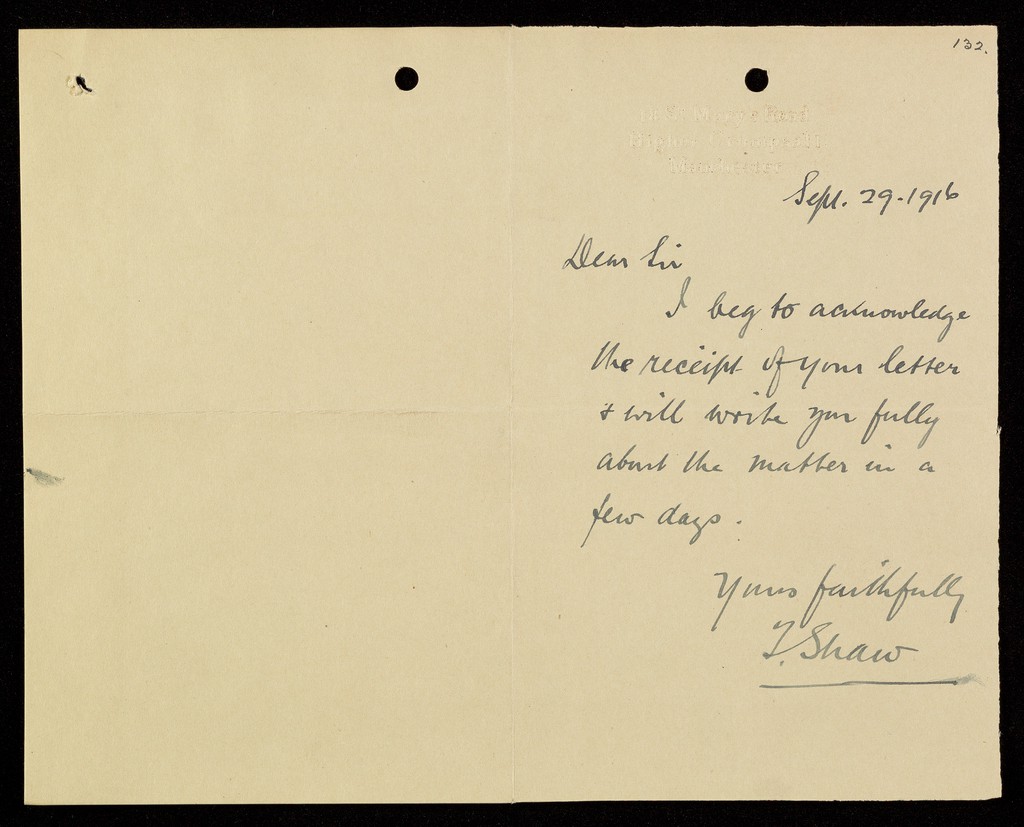 132.
St Mary's Road
Higher Crumpsall
Manchester
Sept. 29. 1916
Dear Sir
I beg to acknowledge
the receipt of your letter
& will write you fully
about the matter in a
few days.
Yours faithfully
T. Shaw